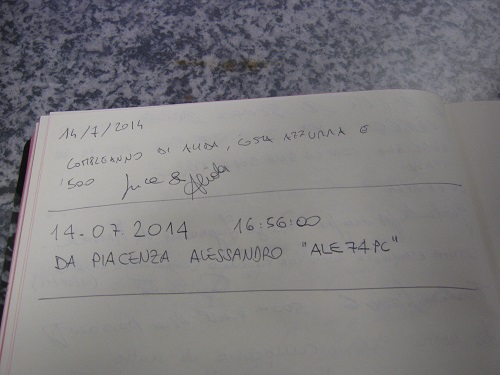 14/7/2014
COMPLEANNO DI ALIDA, COSTA AZZURRA E
'500 Luca & Alida
14.07.2014 16:56:00
DA PIACENZA ALESSANDRO "ALE74PC"